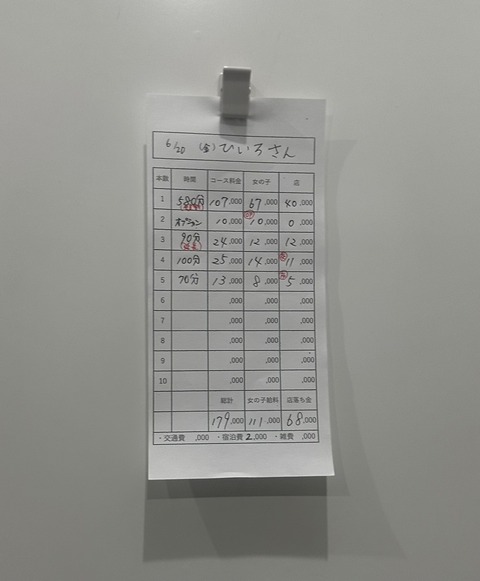 6/20 (金) ひいろさん
本数 時間 コース料金 女の子 店
1 580分 107,000 67,000 40,000
2 オプション 10,000 10,000 0,000
3 90分 24,000 12,000 12,000
4 100分 25,000 14,000 11,000
5 70分 13,000 8,000 5,000
6 ,000 ,000 ,000
7 ,000 ,000 ,000
8 ,000 ,000 ,000
9 ,000 ,000 ,000
10 ,000 ,000 ,000
総計 女の子給料 店落ち金
179,000 111,000 68,000
・交通費 ,000 ・宿泊費 2,000 ・雑費 ,000